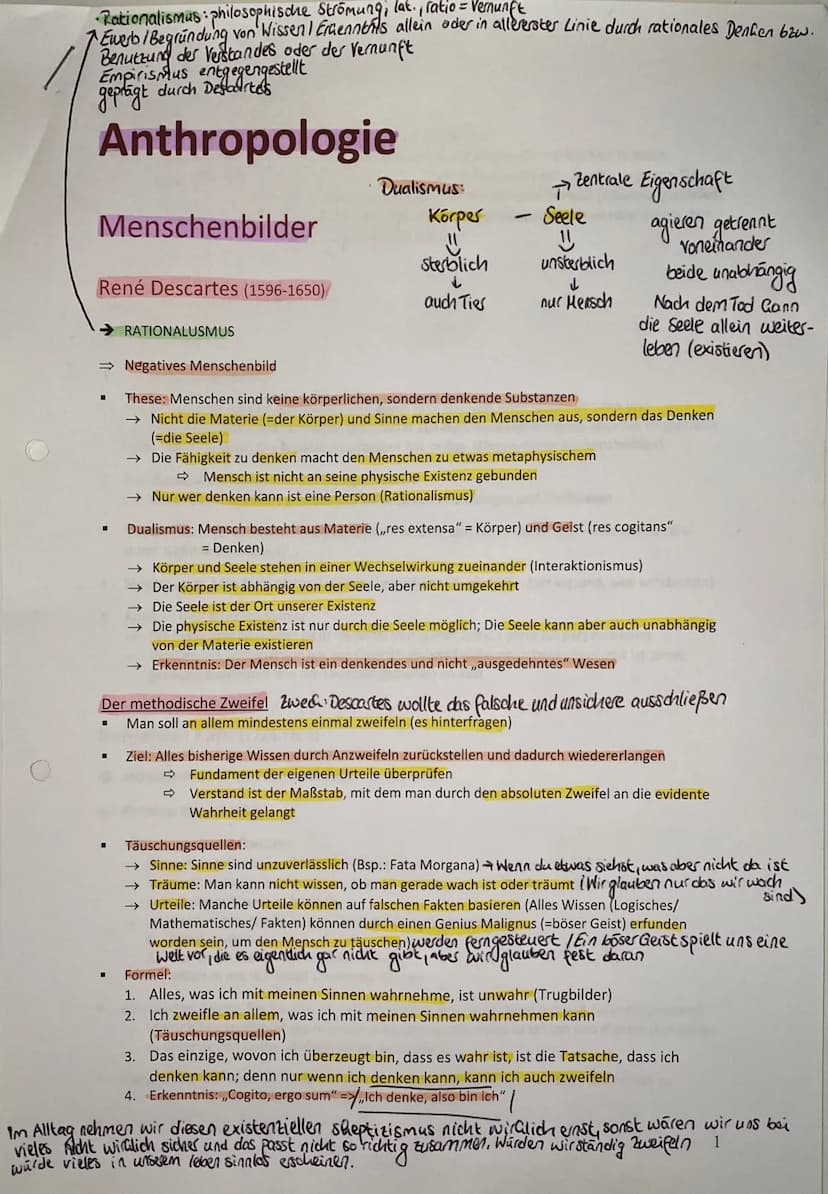 • Rationalismus: philosophische Strömung, lat., ratio = Vernunft
Ewerb/Begründung von Wissen/Erkenntnis allein oder in allererster Linie durch rationales Denken bzw.
Benutzung der Verstandes oder der Vernunft
Empirismus entgegengestellt
geprägt durch Descartes
Anthropologie
Dualismus:
→ Zentrale Eigenschaft
Körper – Seele
agieren getrennt
voneinander
sterblich
unsterblich
beide unabhängig
auch Tiers
nur Mensch
Nach dem Tod kann
die Seele allein weiter-
leben (existieren)
Menschenbilder
René Descartes (1596-1650)
→ RATIONALUSMUS
⇒ Negatives Menschenbild
▪ These: Menschen sind keine körperlichen, sondern denkende Substanzen
→ Nicht die Materie (=der Körper) und Sinne machen den Menschen aus, sondern das Denken
(=die Seele)
→ Die Fähigkeit zu denken macht den Menschen zu etwas metaphysischem
⇨ Mensch ist nicht an seine physische Existenz gebunden
→ Nur wer denken kann ist eine Person (Rationalismus)
▪ Dualismus: Mensch besteht aus Materie („res extensa“ = Körper) und Geist (res cogitans“
= Denken)
→ Körper und Seele stehen in einer Wechselwirkung zueinander (Interaktionismus)
→ Der Körper ist abhängig von der Seele, aber nicht umgekehrt
→ Die Seele ist der Ort unserer Existenz
→ Die physische Existenz ist nur durch die Seele möglich; Die Seele kann aber auch unabhängig
von der Materie existieren
→ Erkenntnis: Der Mensch ist ein denkendes und nicht „ausgedehntes“ Wesen
Der methodische Zweifel Zweck: Descartes wollte das falsche und unsichere ausschließen
▪ Man soll an allem mindestens einmal zweifeln (es hinterfragen)
▪ Ziel: Alles bisherige Wissen durch Anzweifeln zurückstellen und dadurch wiedererlangen
⇨ Fundament der eigenen Urteile überprüfen
⇨ Verstand ist der Maßstab, mit dem man durch den absoluten Zweifel an die evidente
Wahrheit gelangt
▪ Täuschungsquellen:
→ Sinne: Sinne sind unzuverlässlich (Bsp.: Fata Morgana) → Wenn du etwas siehst, was aber nicht da ist
→ Träume: Man kann nicht wissen, ob man gerade wach ist oder träumt (Wir glauben nur das wir wach
sind)
→ Urteile: Manche Urteile können auf falschen Fakten basieren (Alles Wissen (Logisches/
Mathematisches/ Fakten) können durch einen Genius Malignus (=böser Geist) erfunden
worden sein, um den Menschen zu täuschen) werden ferngesteuert / Ein böser Geist spielt uns eine
Welt vor, die es eigentlich gar nicht gibt, aber wir glauben fest daran
▪ Formel:
1. Alles, was ich mit meinen Sinnen wahrnehme, ist unwahr (Trugbilder)
2. Ich zweifle an allem, was ich mit meinen Sinnen wahrnehmen kann
(Täuschungsquellen)
3. Das einzige, wovon ich überzeugt bin, dass es wahr ist, ist die Tatsache, dass ich
denken kann; denn nur wenn ich denken kann, kann ich auch zweifeln
4. Erkenntnis: „Cogito, ergo sum“ => „Ich denke, also bin ich“
Im Alltag nehmen wir diesen existentiellen Skeptizismus nicht wirklich ernst, sonst wären wir uns bei
vieles nicht wirklich sicher und das passt nicht so richtig zusammen. Würden wir ständig zweifeln
würde vieles in unserem leben sinnlos erscheinen.
1